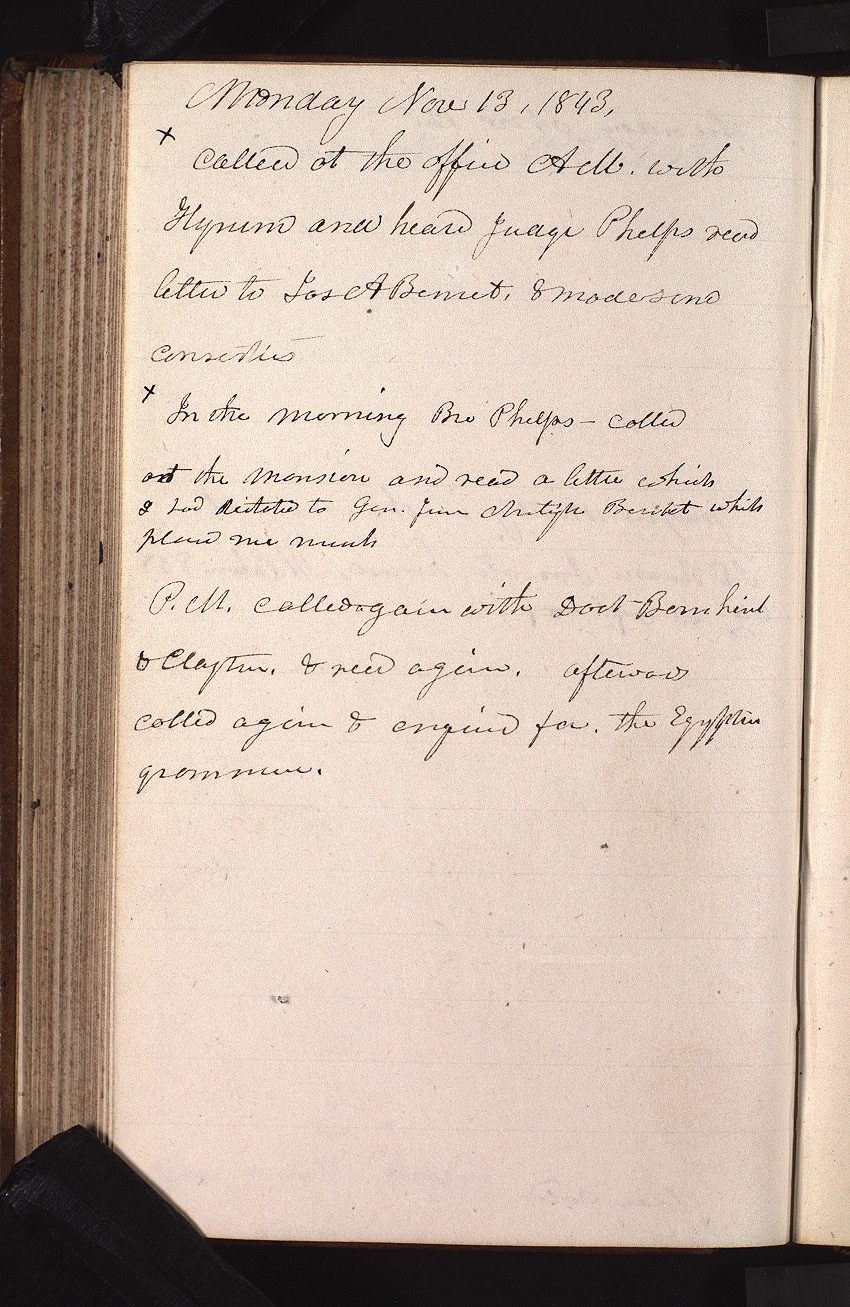 Monday Nov 13, 1843,
x
called at the office A M. with
Hyrum and heard Judge Phelps read
letter to Jas A Bennet. & made some
corrections
x
In the morning Bro Phelps - called
at the mansion and read a letter which
I had dictated to Gen. James Arlington Bennet which
pleased me much
P.M. called again with Doct Bernhisel
& Clayton. & read again. afterwards
called again & enquired for. the Egyptian
grammar.